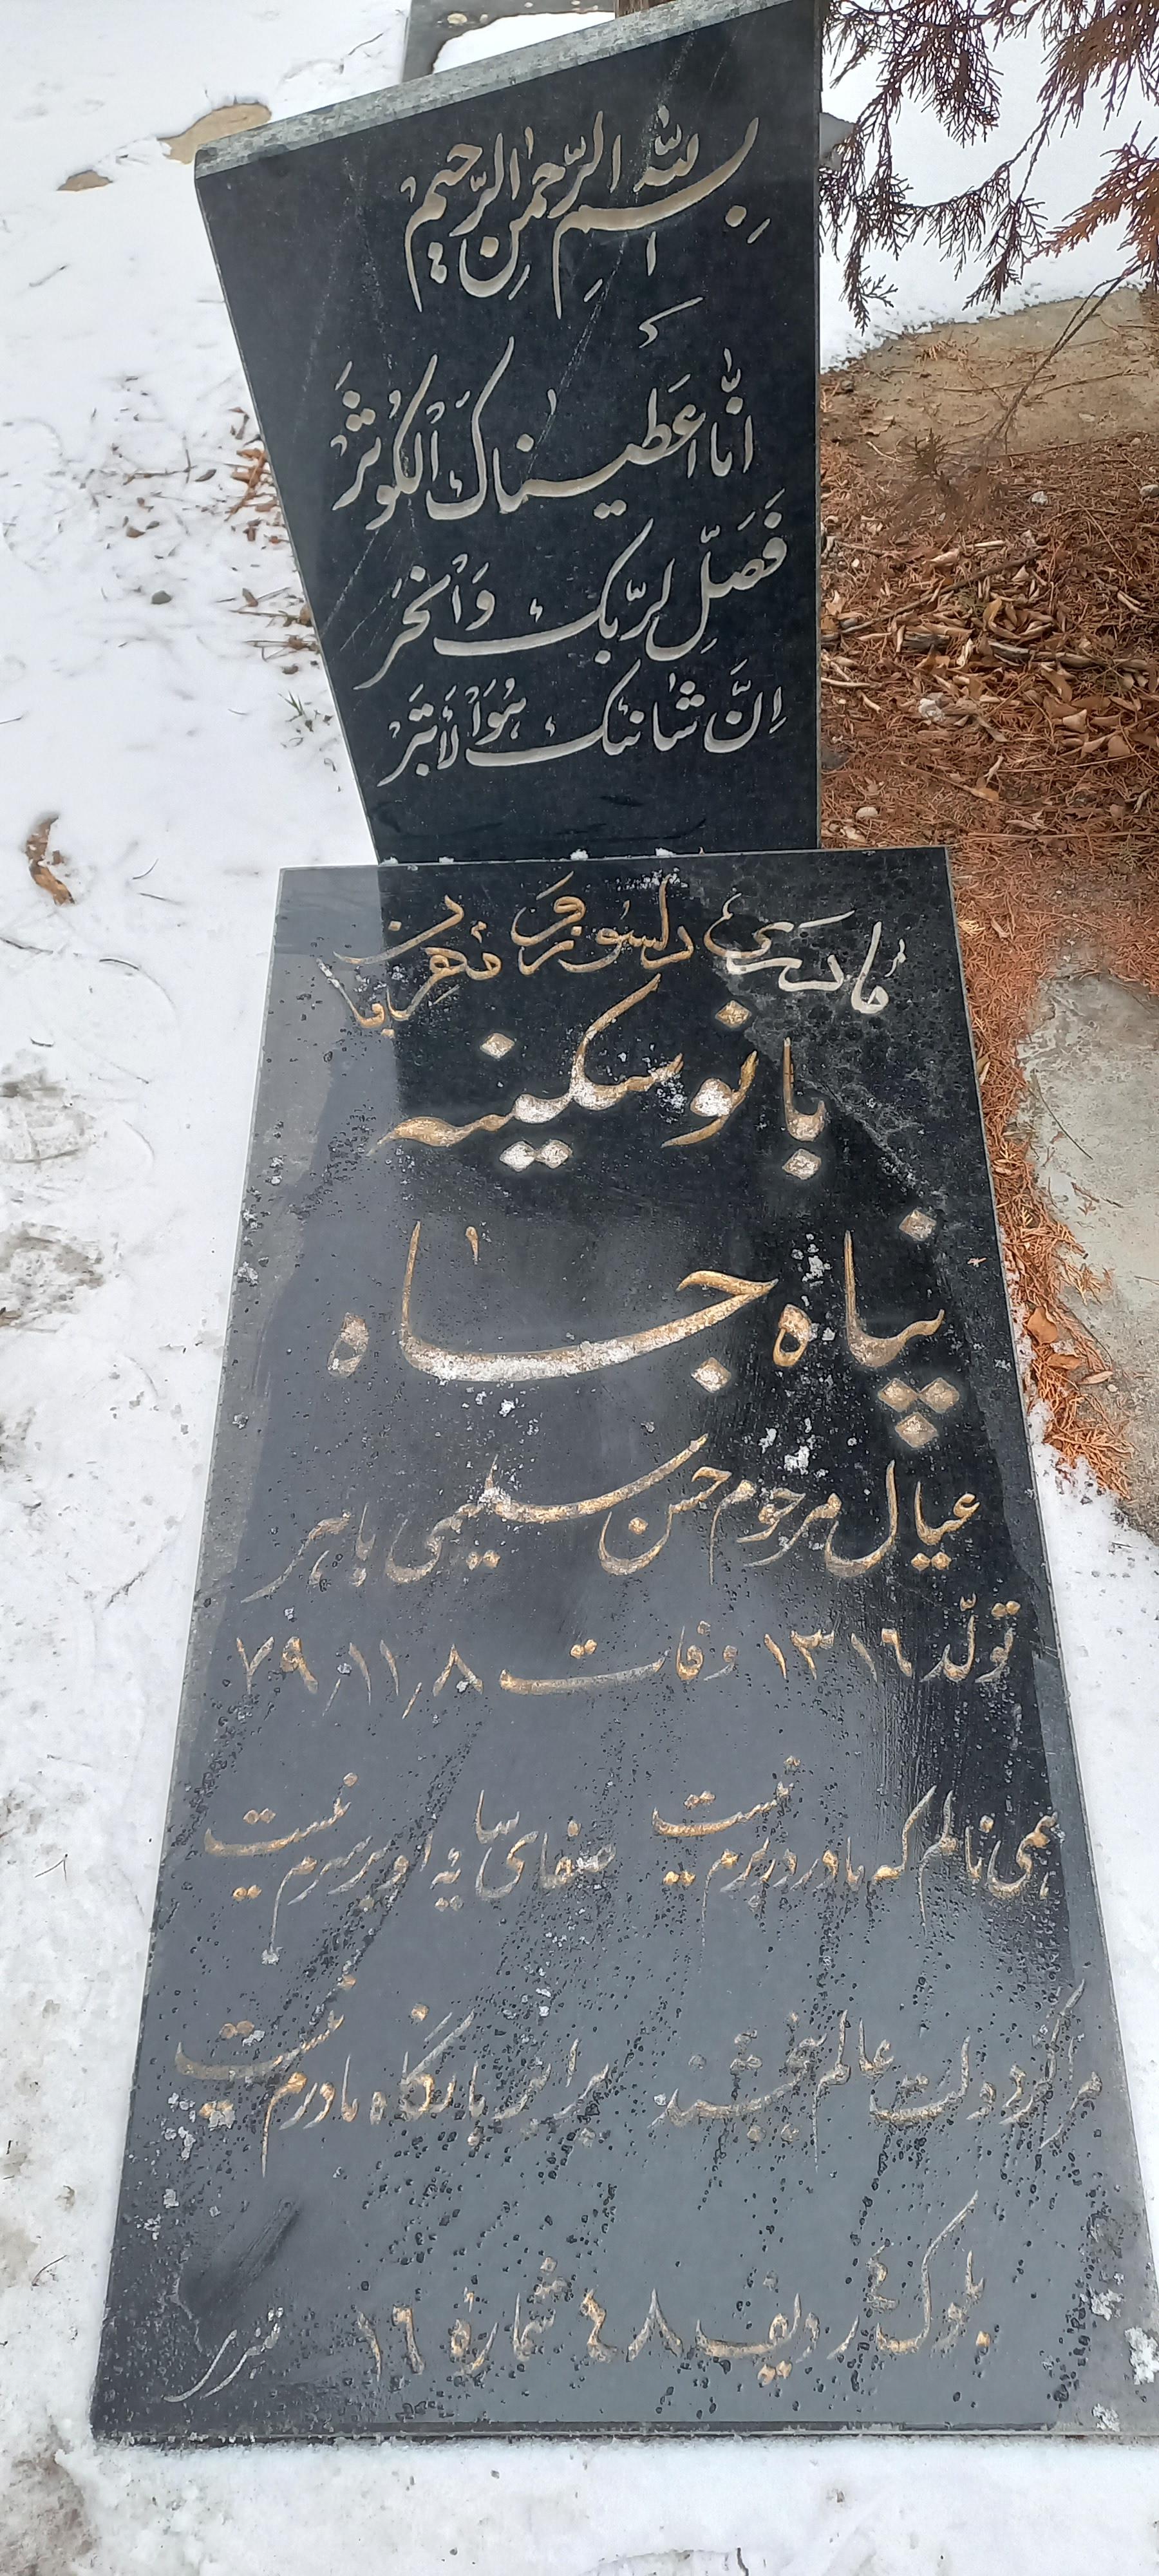 بِسْمِ اللّٰهِ الرَّحْمٰنِ الرَّحيمْ
اِنّٰا اَعْطَيْناكَ الْكَوْثَرَ
فَصَلِّ لِرَبِّكَ وَانْحَرْ
اِنَّ شٰانِئَكَ هُوَ الْاَبْتَرْ
مادری دلسوز و مهربان
بانو سکینه
پناه جاه
عیال مرحوم حسن سلیمی باهر
تولّد ۱۳۱۶ وفات ۷۹/۱۱/۸
همی نالم که مادر در برم نیست صفای سایه او بر سرم نیست
مرا گر دولت عالم ببخشند برابر با نگاه مادرم نیست
بلوک ردیف ۴۸ شماره ۱۶